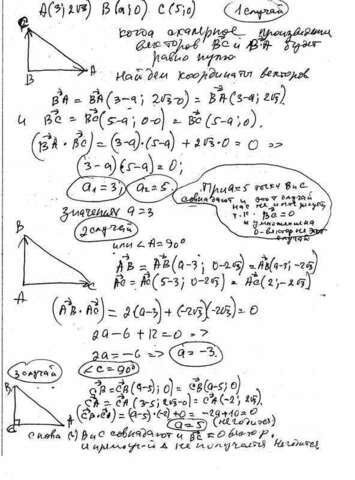 A(3; 2√3) B(a; 0) C(5; 0) 1 случай
когда скалярное произведение
векторов BC и BA будет
равно нулю
Найдем координаты векторов
C
B A
BA = BA(3-a; 2√3-0) = BA(3-a; 2√3).
и BC = BC(5-a; 0-0) = BC(5-a; 0).
(BA · BC) = (3-a)·(5-a) + 2√3·0 = 0 =>
3-a)(5-a) = 0;
a₁ = 3; a₂ = 5.
При a=5 точки B и C
совпадают и этот случай
нас не
т.к. BC = 0
и
0-вектор не этот
случай
значения a=3
2 случай
или ∠A = 90°
B
A C
AB = AB(a-3; 0-2√3) = AB(a-3; -2√3)
AC = AC(5-3; 0-2√3) = AC(2; -2√3)
(AB · AC) = 2(a-3) + (-2√3)(-2√3) = 0
2a - 6 + 12 = 0 =>
2a = -6 => a = -3.
3 случай
∠C = 90°
B
C A
CB = CB(a-5; 0) = CB(a-5; 0)
CA = CA(3-5; 2√3-0) = CA(-2; 2√3).
(CB · CA) = (a-5)·(-2) + 0 = -2a + 10 = 0
a = 5 (не годится)
снова B и C совпадают и BC = 0 вектор.
и Δ не получается Не годится